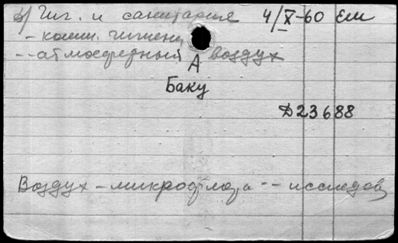 б) Гиг. и санитария 4/X-60 Ем
- комм. гигиена
-- атмосферный воздух
А
Баку
Д23688
Воздух - микрофлора -- исследов